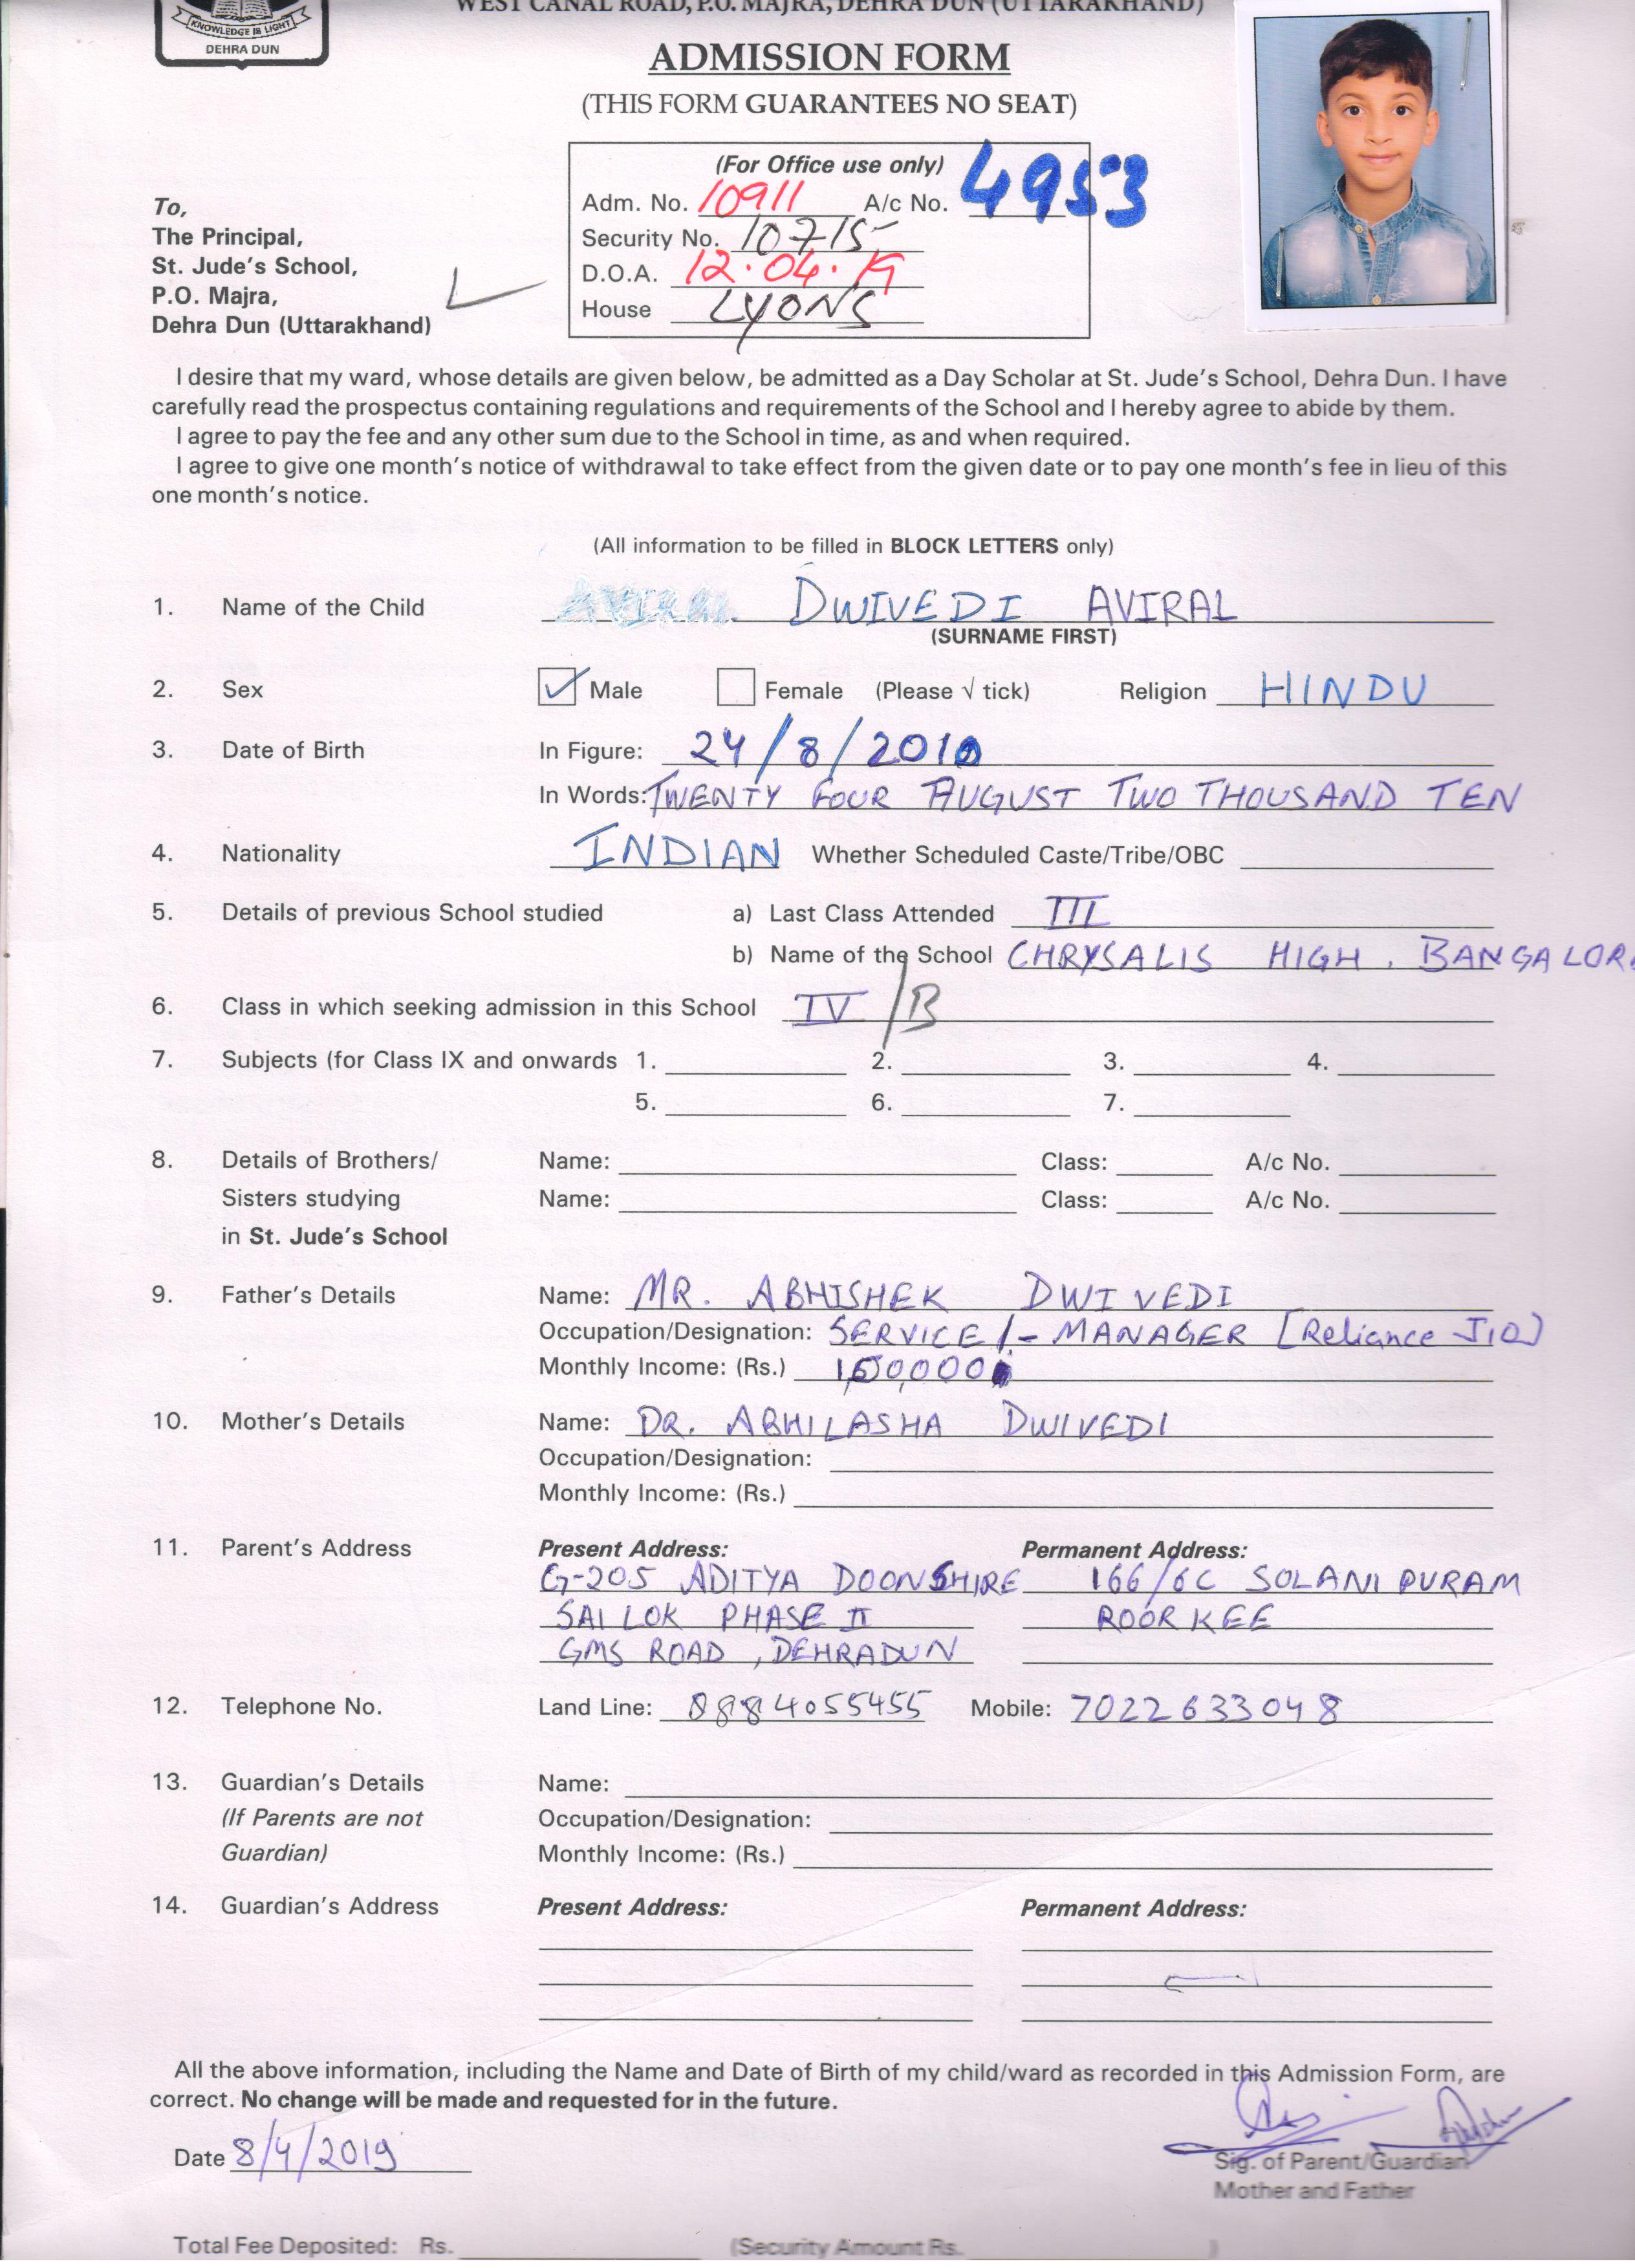 WEST CANAL ROAD, P.O. MAJRA, DEHRA DUN (UTTARAKHAND)
KNOWLEDGE IS LIGHT
DEHRA DUN
ADMISSION FORM
(THIS FORM GUARANTEES NO SEAT)
(For Office use only)
Adm. No. 10911 A/c No. 4953
Security No. 10715
D.O.A. 12.04.19
House LYONS
To,
The Principal,
St. Jude's School,
P.O. Majra,
Dehra Dun (Uttarakhand)
I desire that my ward, whose details are given below, be admitted as a Day Scholar at St. Jude's School, Dehra Dun. I have
carefully read the prospectus containing regulations and requirements of the School and I hereby agree to abide by them.
I agree to pay the fee and any other sum due to the School in time, as and when required.
I agree to give one month's notice of withdrawal to take effect from the given date or to pay one month's fee in lieu of this
one month's notice.
(All information to be filled in BLOCK LETTERS only)
1. Name of the Child AVIRAL DWIVEDI AVIRAL
(SURNAME FIRST)
2. Sex Male Female (Please √ tick) Religion HINDU
3. Date of Birth In Figure: 24/8/2010
In Words: TWENTY FOUR AUGUST TWO THOUSAND TEN
4. Nationality INDIAN Whether Scheduled Caste/Tribe/OBC
5. Details of previous School studied a) Last Class Attended III
b) Name of the School CHRYSALIS HIGH. BANGALOR
6. Class in which seeking admission in this School IV /B
7. Subjects (for Class IX and onwards 1. 2. 3. 4.
5. 6. 7.
8. Details of Brothers/ Name: Class: A/c No.
Sisters studying Name: Class: A/c No.
in St. Jude's School
9. Father's Details Name: MR. ABHISHEK DWIVEDI
Occupation/Designation: SERVICE/- MANAGER [Reliance JIO]
Monthly Income: (Rs.)
10. Mother's Details Name: DR. ABHILASHA DWIVEDI
Occupation/Designation:
Monthly Income: (Rs.)
11. Parent's Address Present Address: Permanent Address:
G-205 ADITYA DOONSHIRE 166/6C SOLANI PURAM
SAI LOK PHASE II ROORKEE
GMS ROAD, DEHRADUN
12. Telephone No. Land Line: 8884055455 Mobile: 7022633048
13. Guardian's Details Name:
(If Parents are not Occupation/Designation:
Guardian) Monthly Income: (Rs.)
14. Guardian's Address Present Address: Permanent Address:
All the above information, including the Name and Date of Birth of my child/ward as recorded in this Admission Form, are
correct. No change will be made and requested for in the future.
Date 8/4/2019
Sig. of Parent/Guardian
Mother and Father
Total Fee Deposited: Rs. (Security Amount Rs. )